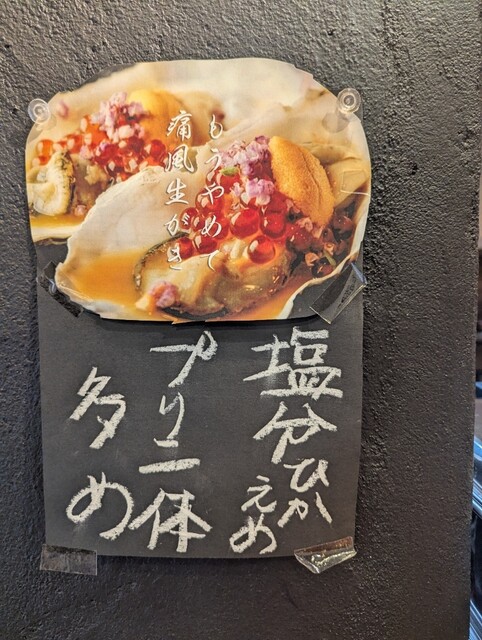 もうやめて
痛風生がき
塩分ひかえめ
プリン体
多め